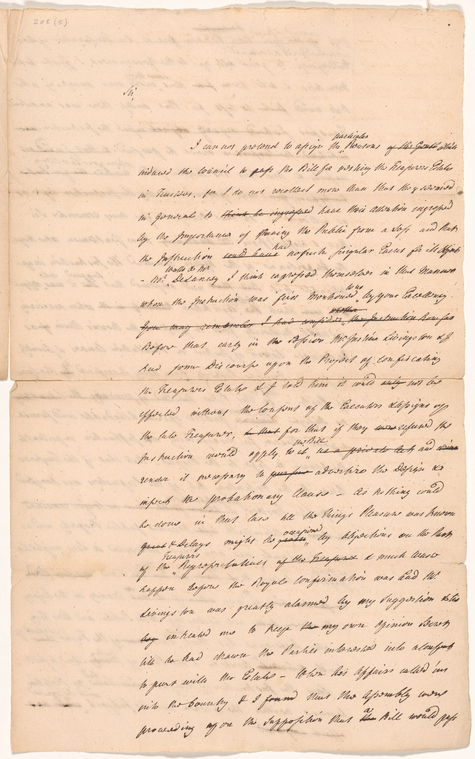 205 (5)
Sir,
particular
I cannot pretend to assign the Reasons of the Council which
induced the Council to pass the Bill for vesting the Treasurers Estate
in Trustees, for I do not recollect more than that they seemed
in general to have their Attention engrossed
by the Importance of saving the Public from a Loss and that
the Instruction could have had no such singular Cases for its Object
Watts & Mr.
Mr. DeLancey I think expressed themselves in this manner
when the Instruction was first mentioned to us by your Excellency.
You may remember I had the Instruction
Before that early in the Session Mr Justice Livingston & I
had some Discourse upon the Project of confiscating
the Treasurers Estate & I told him it could only not be
effected without the consent of the Executors & Assigns of
the late Treasurer, for that if they refused the
the Bill
Instruction would apply to it, as a private Act and
render it necessary to advertise the Design &
insert the probationary Clause – As nothing could
be done in that Case till the King's Pleasure was known
occasioned
great Delays might be by Objections on the Part
Treasurers
of the Representatives of the Treasurer & much Waste
happen before the Royal Confirmation was had Mr.
Livingston was greatly alarmed by my Suggestion & he
intreated me to keep the my own Opinion Secret
till he had drawn the Parties interested into a consent
to part with the Estate – When his Affairs called him
into the Country & I found that the Assembly were
a
proceeding upon the Supposition that the Bill would pass